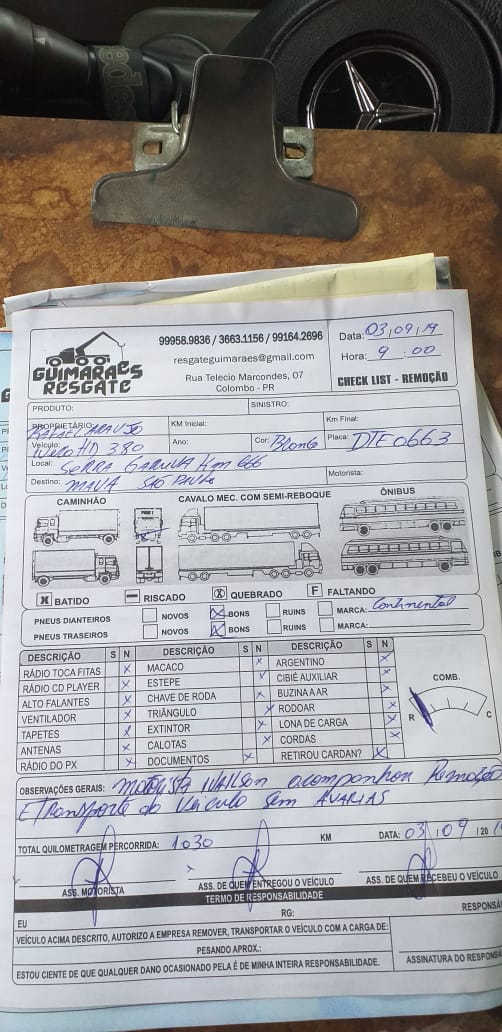 GUIMARAES
RESGATE
99958.9836 / 3663.1156 / 99164.2696
resgateguimaraes@gmail.com
Rua Telecio Marcondes, 07
Colombo - PR
Data: 03/09/19
Hora: 9 : 00
CHECK LIST - REMOÇÃO
PRODUTO: SINISTRO:
PROPRIETÁRIO: RAFAEL ARAUJO KM Inicial: Km Final:
Veículo: Iveco HD 380 Ano: Cor: Branco Placa: DTE0663
Local: SERRA Km 666 Motorista:
Destino: MAUA SÃO PAULO
CAMINHÃO CAVALO MEC. COM SEMI-REBOQUE ÔNIBUS
BATIDO RISCADO X QUEBRADO F FALTANDO
PNEUS DIANTEIROS NOVOS X BONS RUINS MARCA: Continental
PNEUS TRASEIROS NOVOS X BONS RUINS MARCA:
DESCRIÇÃO S N DESCRIÇÃO S N DESCRIÇÃO S N
RÁDIO TOCA FITAS X MACACO X ARGENTINO X
RÁDIO CD PLAYER X ESTEPE X CIBIÉ AUXILIAR X
ALTO FALANTES X CHAVE DE RODA X BUZINA A AR X
VENTILADOR X TRIÂNGULO X RODOAR X
TAPETES X EXTINTOR X LONA DE CARGA X
ANTENAS X CALOTAS X CORDAS X
RÁDIO DO PX X DOCUMENTOS X RETIROU CARDAN? X
COMB.
R C
OBSERVAÇÕES GERAIS: Motorista acompanhou Remoção
E Transporte do Veiculo Sem AVARIAS
TOTAL QUILOMETRAGEM PERCORRIDA: 1030 KM DATA: 03/09/20
ASS. MOTORISTA ASS. DE QUEM ENTREGOU O VEÍCULO ASS. DE QUEM RECEBEU O VEÍCULO
TERMO DE RESPONSABILIDADE
EU RG: RESPONSÁ
VEÍCULO ACIMA DESCRITO, AUTORIZO A EMPRESA REMOVER, TRANSPORTAR O VEÍCULO COM A CARGA DE:
PESANDO APROX.:
ESTOU CIENTE DE QUE QUALQUER DANO OCASIONADO PELA É DE MINHA INTEIRA RESPONSABILIDADE.
ASSINATURA DO RESPONSÁ